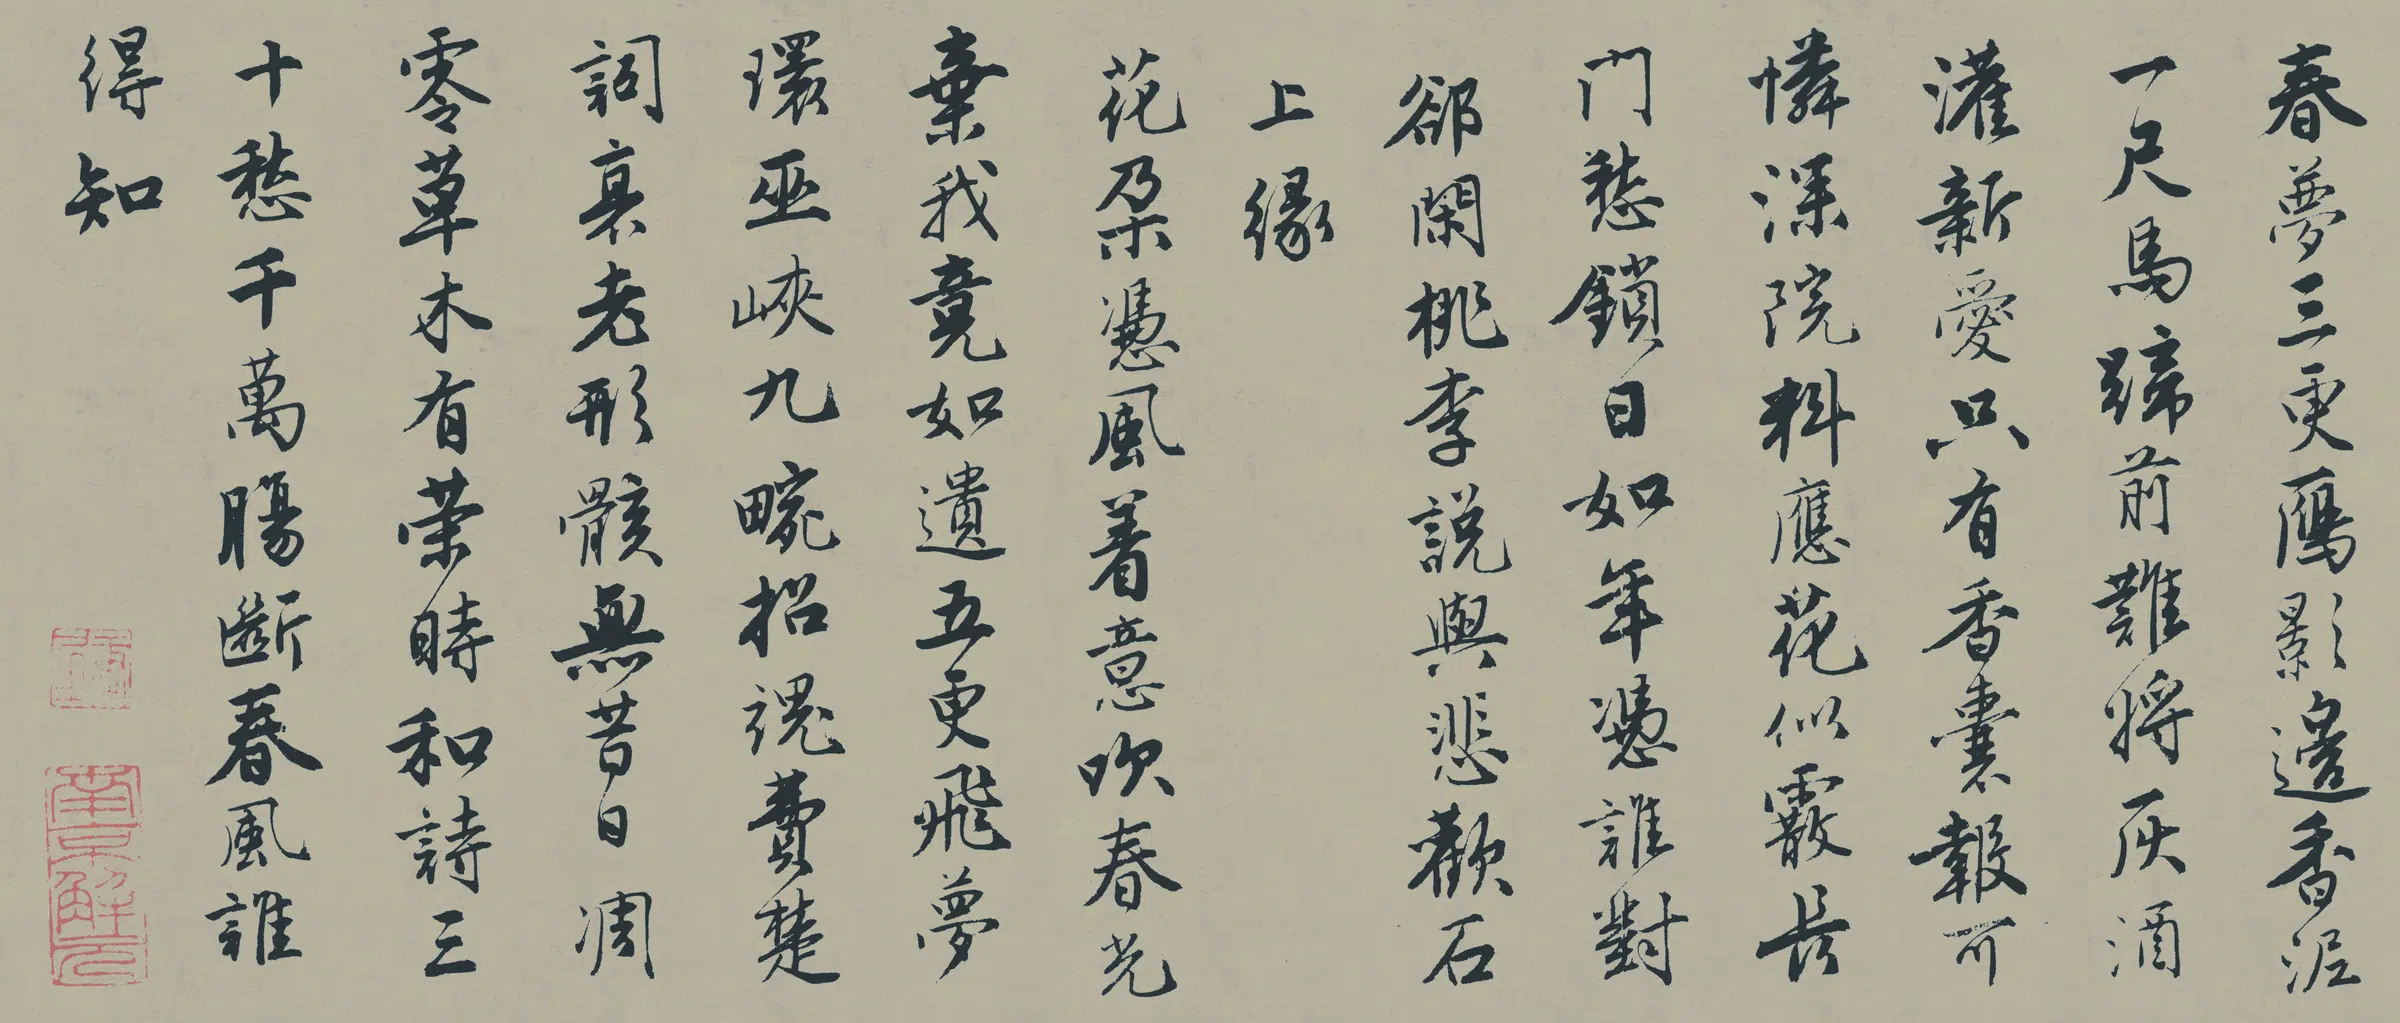 春夢三更鴈影邊香泥
一尺馬蹄前難將灰酒
灌新愛只有香囊報可
憐深院料應花似霰長
門愁鎖日如年憑誰對
卻閑桃李說與悲歡石
上緣
花朵憑風着意吹春光
棄我竟如遺五更飛夢
環巫峽九畹招魂費楚
詞衰老形骸無昔日凋
零草木有榮時和詩三
十愁千萬腸斷春風誰
得知
南京解元